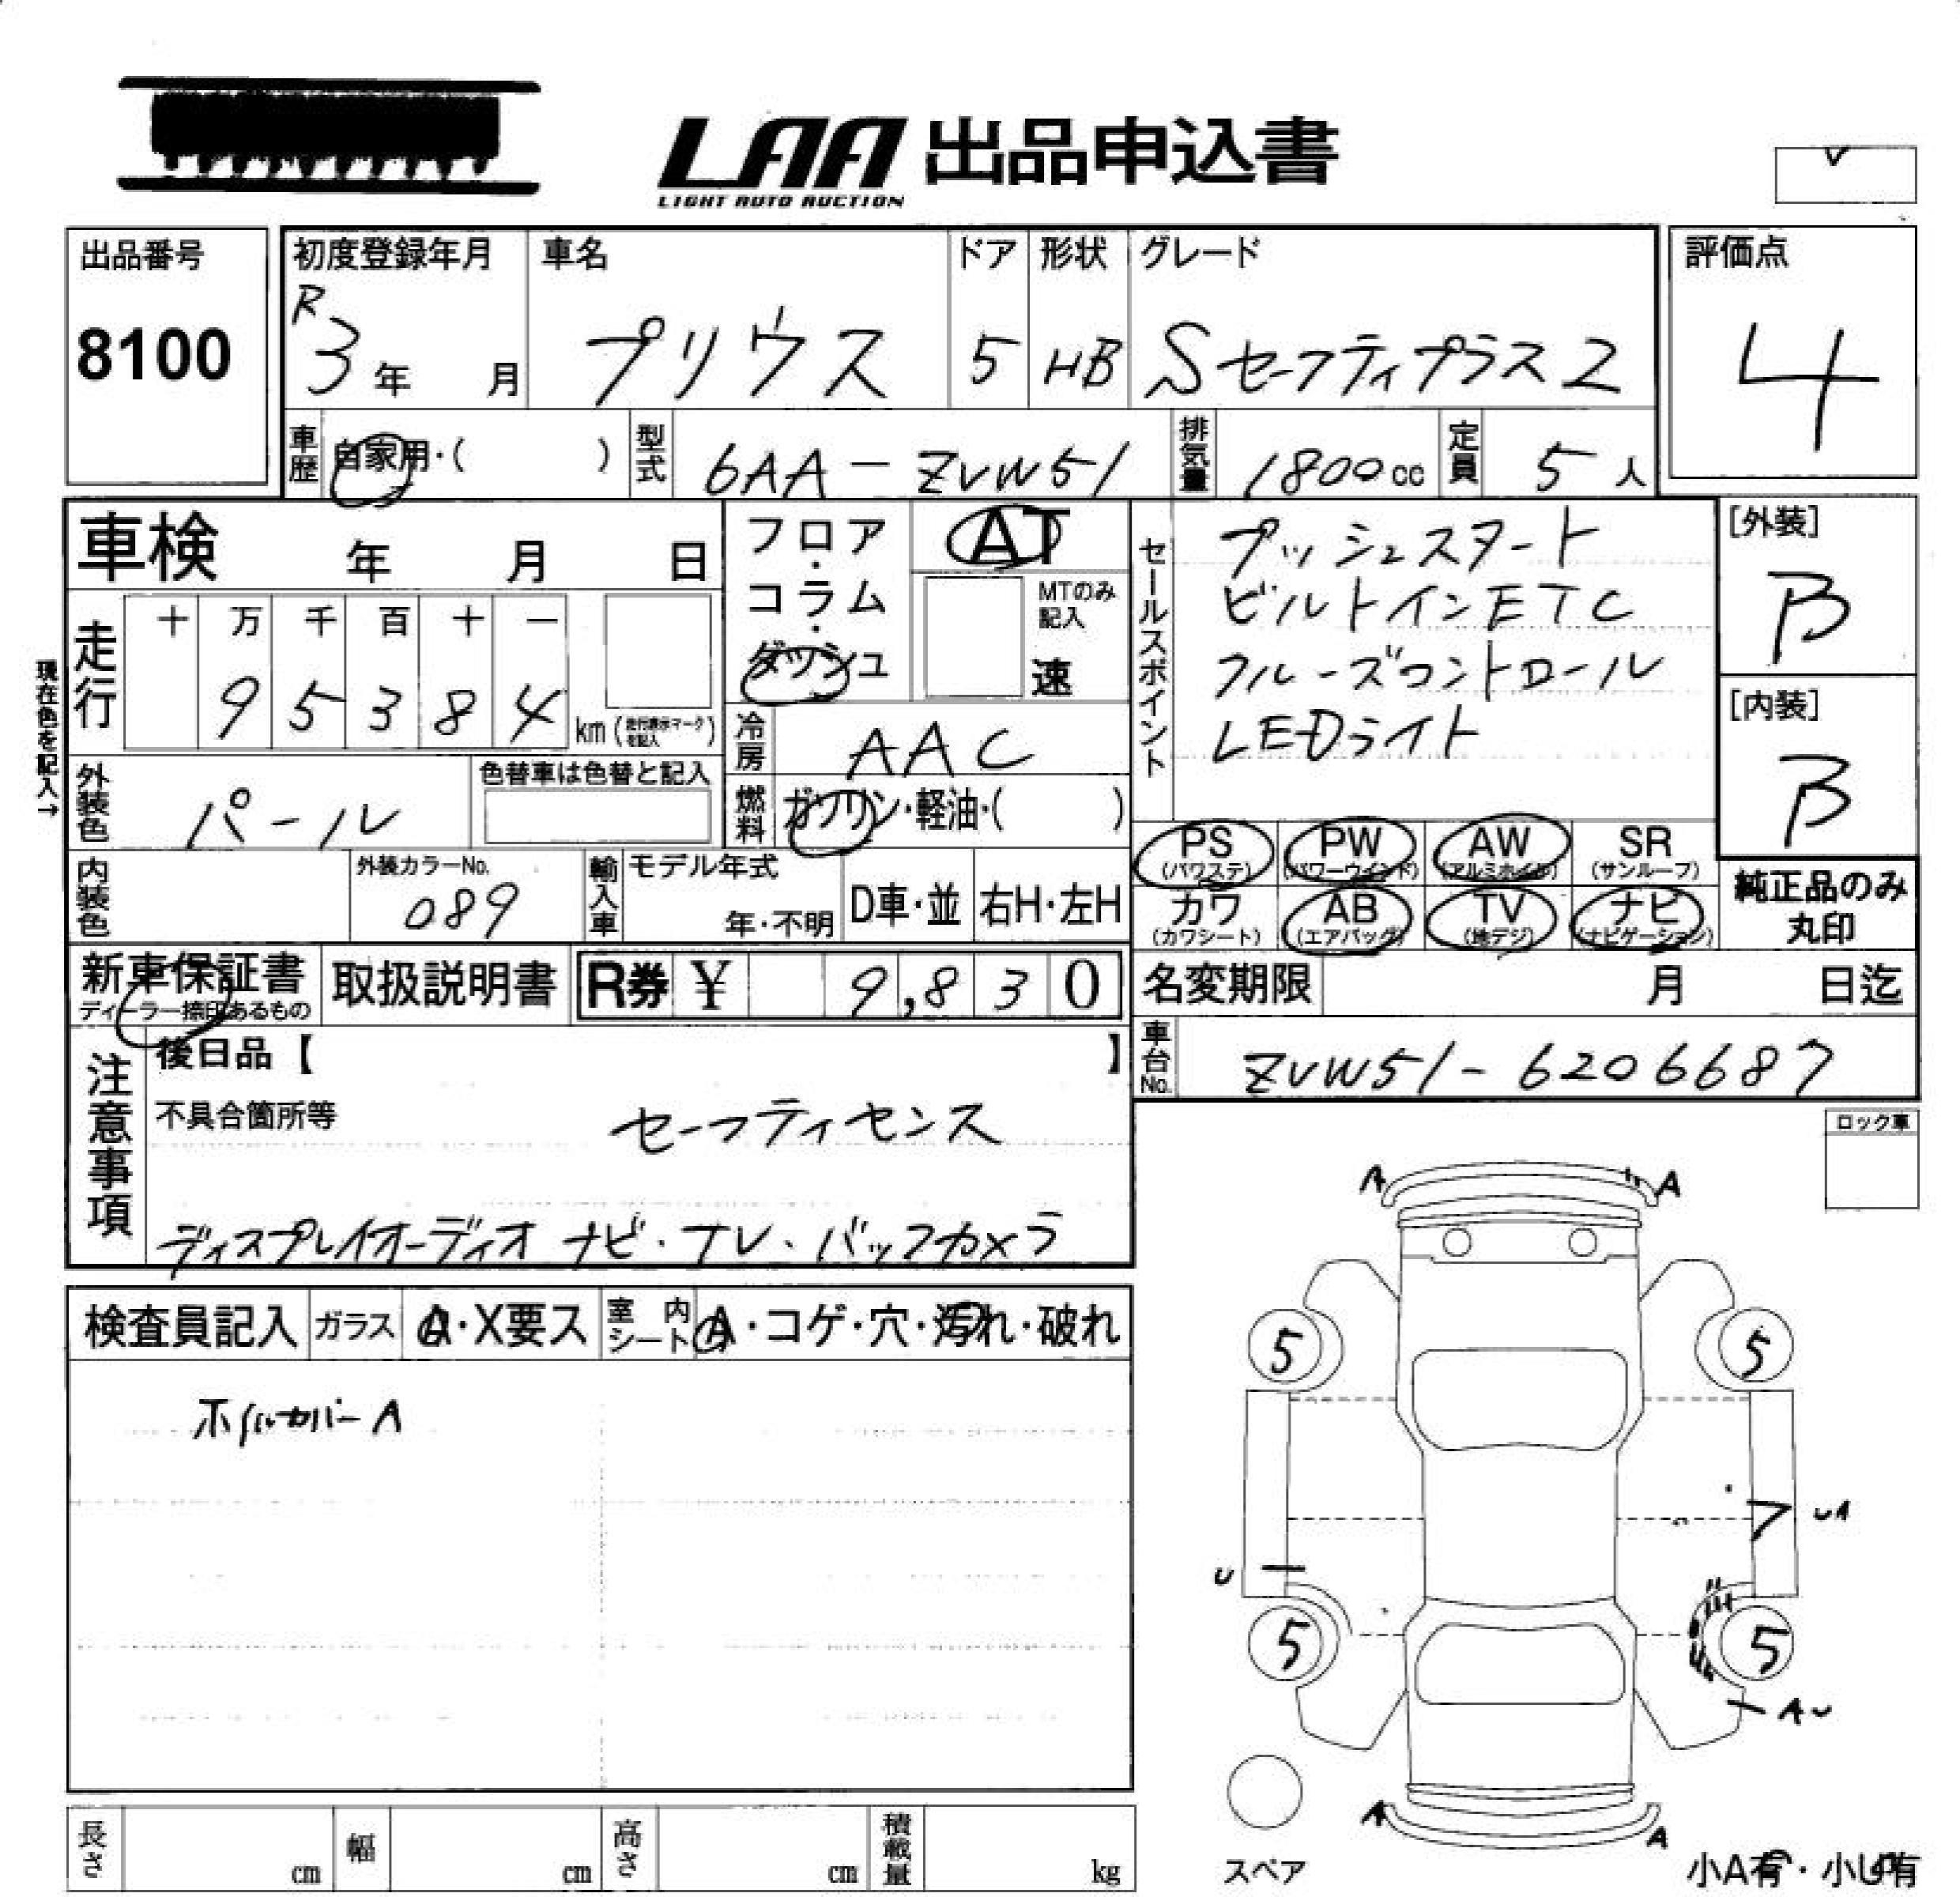 LAA 出品申込書
LIGHT AUTO AUCTION
出品番号
8100
初度登録年月
R
3年 月
車名
プリウス
ドア
5
形状
HB
グレード
Sセーフティプラス2
評価点
4
車歴
自家用・( )
型式
6AA-ZVW51
排気量
1800cc
定員
5人
車検 年 月 日
フロア・コラム・ダッシュ
AT
MTのみ記入
速
セールスポイント
プッシュスタート
ビルトインETC
クルーズコントロール
LEDライト
[外装]
B
[内装]
B
現在色を記入→
走行
十 万 千 百 十 一
9 5 3 8 4
km (走行表示マークを記入)
冷房
AAC
外装色
パール
色替車は色替と記入
燃料
ガソリン・軽油・( )
PS (パワステ)
PW (パワーウインド)
AW (アルミホイル)
SR (サンルーフ)
カワ (カワシート)
AB (エアバッグ)
TV (地デジ)
ナビ (ナビゲーション)
純正品のみ
丸印
内装色
外装カラーNo.
089
輸入車
モデル年式
年・不明
D車・並
右H・左H
新車保証書
ディーラー捺印あるもの
取扱説明書
R券 ¥ 9,830
名変期限 月 日迄
車台No.
ZVW51-6206687
注意事項
後日品【 】
不具合箇所等
セーフティセンス
ディスプレイオーディオ ナビ・テレ・バックカメラ
ロック車
検査員記入
ガラス
A・X要ス
室内シート
A・コゲ・穴・汚れ・破れ
ホイルカバーA
A A
5 5
UA
U
5 5
AU
A A
スペア
小A有・小U有
長さ cm
幅 cm
高さ cm
積載量 kg